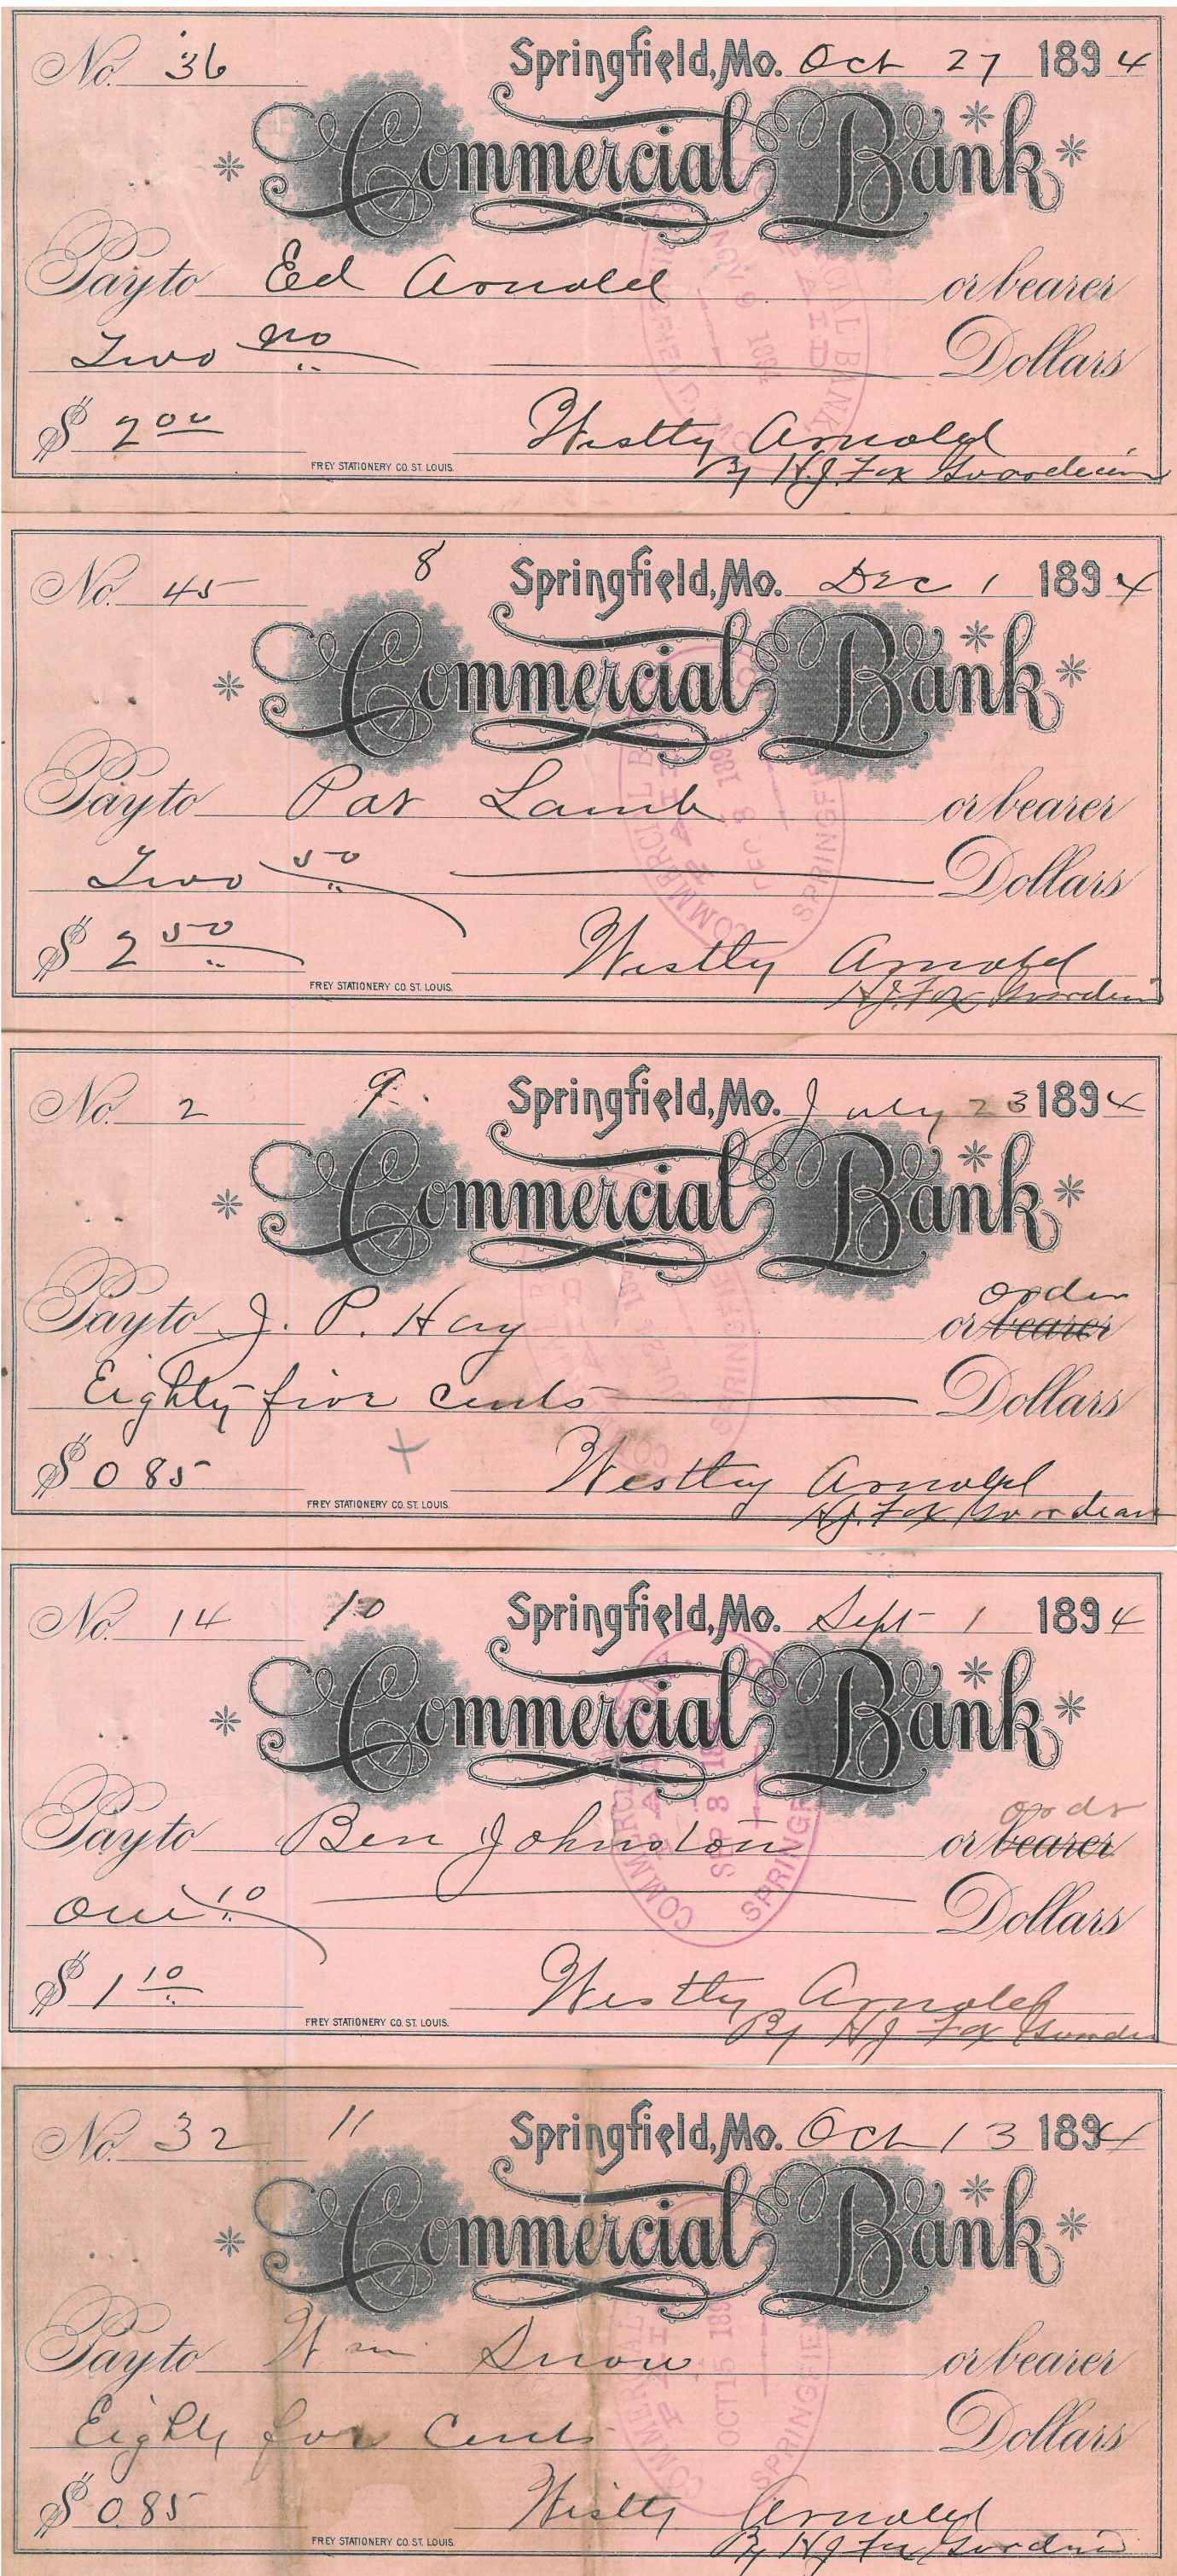 No. 36 Springfield, Mo. Oct 27 1894
Commercial Bank
Pay to Ed Arnold or bearer
Two no/.. Dollars
$ 2 00 Westly Arnold
FREY STATIONERY CO. ST. LOUIS. By H.J. Fox
PAID NOV 9 1894
No. 45 8 Springfield, Mo. Dec 1 1894
Commercial Bank
Pay to Pat Lamb or bearer
Two 50/.. Dollars
$ 2 50/.. Westly Arnold
FREY STATIONERY CO. ST. LOUIS. H.J. Fox
COMMERCIAL BANK PAID DEC 8 SPRINGFIELD
No. 2 9 Springfield, Mo. July 23 1894
Commercial Bank
order
Pay to J. P. Hay or bearer
Eighty five cents Dollars
$ 0 85 Westly Arnold
FREY STATIONERY CO. ST. LOUIS. H.J. Fox Guardean
No. 14 10 Springfield, Mo. Sept 1 1894
Commercial Bank
Pay to Ben Johnston or bearer
One 10/.. Dollars
$ 1 10/.. Westly Arnold
FREY STATIONERY CO. ST. LOUIS. By HJ Fox
COMMERCIAL SEP 3 SPRINGFIELD
No. 32 11 Springfield, Mo. Oct 13 1894
Commercial Bank
Pay to Wm Snow or bearer
Eighty Cents Dollars
$ 0.85 Westly Arnold
FREY STATIONERY CO. ST. LOUIS. By HJ Fox
COMMERCIAL PAID OCT 15 SPRINGFIELD